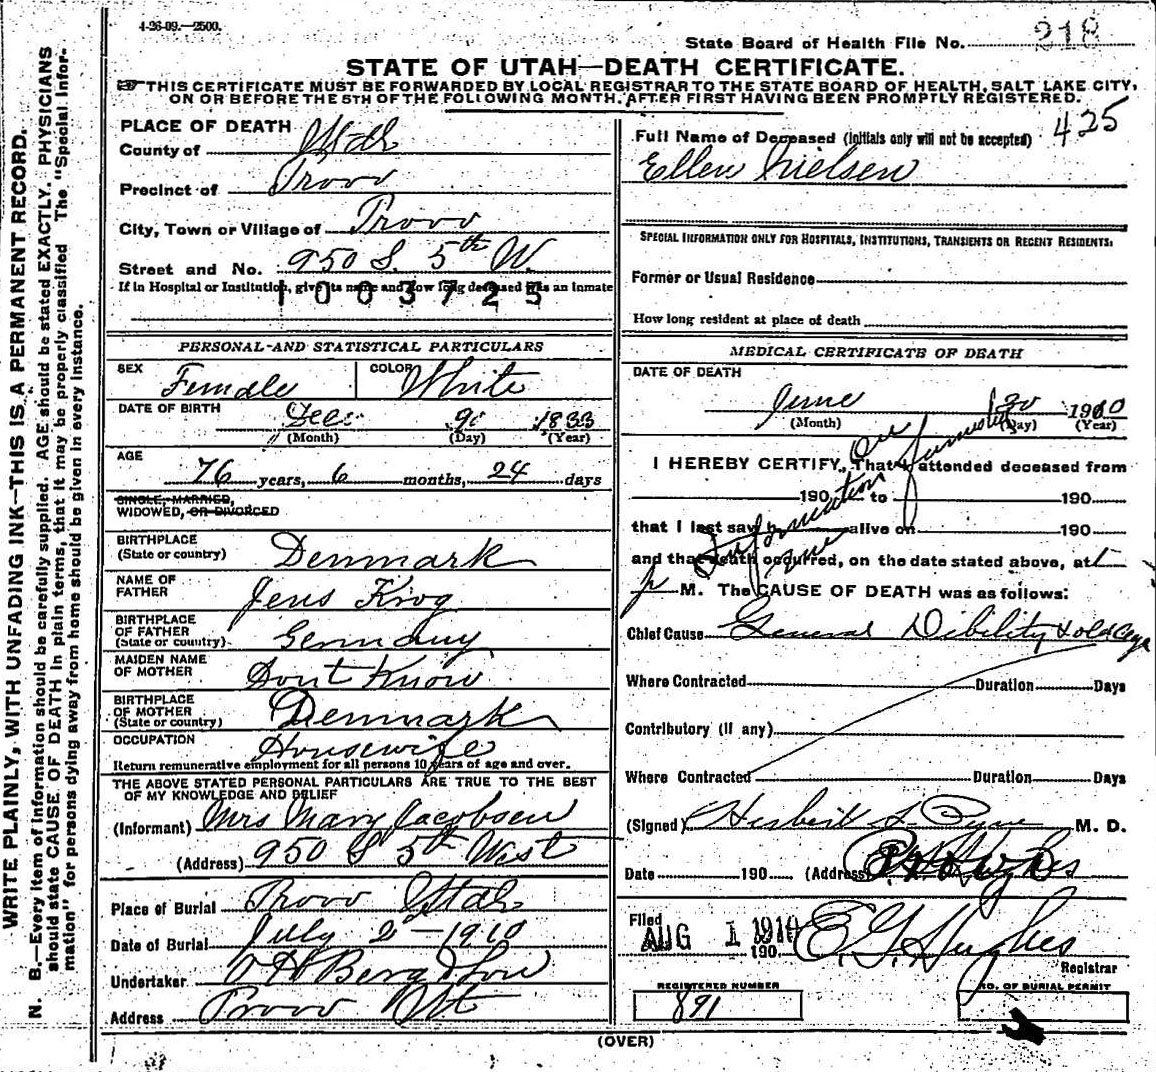 4-26-09.—2500.
State Board of Health File No. 218
STATE OF UTAH—DEATH CERTIFICATE.
THIS CERTIFICATE MUST BE FORWARDED BY LOCAL REGISTRAR TO THE STATE BOARD OF HEALTH, SALT LAKE CITY,
ON OR BEFORE THE 5TH OF THE FOLLOWING MONTH, AFTER FIRST HAVING BEEN PROMPTLY REGISTERED.
WRITE PLAINLY, WITH UNFADING INK—THIS IS A PERMANENT RECORD.
N. B.—Every item of information should be carefully supplied. AGE should be stated EXACTLY. PHYSICIANS
should state CAUSE OF DEATH in plain terms, that it may be properly classified. The "Special Infor-
mation" for persons dying away from home should be given in every instance.
PLACE OF DEATH
County of Utah
Precinct of Provo
City, Town or Village of Provo
Street and No. 950 S. 5th W.
If in Hospital or Institution, give its name and how long deceased was an inmate
1003725
PERSONAL AND STATISTICAL PARTICULARS
SEX Female COLOR White
DATE OF BIRTH Dec. 9 1833
(Month) (Day) (Year)
AGE 76 years, 6 months, 24 days
SINGLE, MARRIED,
WIDOWED, OR DIVORCED
BIRTHPLACE
(State or country) Denmark
NAME OF
FATHER Jens Krog
BIRTHPLACE
OF FATHER
(State or country) Germany
MAIDEN NAME
OF MOTHER Dont Know
BIRTHPLACE
OF MOTHER
(State or country) Denmark
OCCUPATION Housewife
Return remunerative employment for all persons 10 years of age and over.
THE ABOVE STATED PERSONAL PARTICULARS ARE TRUE TO THE BEST
OF MY KNOWLEDGE AND BELIEF
(Informant) Mrs Mary Jacobsen
(Address) 950 S 5th West
Place of Burial Provo Utah
Date of Burial July 2 - 1910
Undertaker
Address Provo Ut
425
Full Name of Deceased (Initials only will not be accepted)
Ellen Nielsen
SPECIAL INFORMATION ONLY FOR HOSPITALS, INSTITUTIONS, TRANSIENTS OR RECENT RESIDENTS:
Former or Usual Residence
How long resident at place of death
MEDICAL CERTIFICATE OF DEATH
DATE OF DEATH
June 30 1910
(Month) (Day) (Year)
I HEREBY CERTIFY, That I attended deceased from
190 to 190
that I last saw h alive on 190
and that death occurred, on the date stated above, at 1
p M. The CAUSE OF DEATH was as follows:
On Information furnished me
Chief Cause General Dibility & old age
Where Contracted Duration Days
Contributory (if any)
Where Contracted Duration Days
(Signed) Herbert S. Pyne M. D.
Date 190 (Address)
Filed
AUG 1 1910 190 E. G. Hughes
Registrar
REGISTERED NUMBER
891
NO. OF BURIAL PERMIT
(OVER)